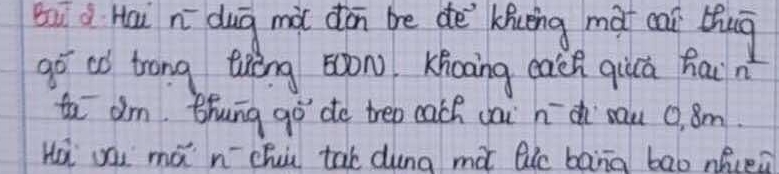 Bài 2: Hai n̄ dùg một đòn tre để khiêng một cái thùg
gỗ có trọng lượng 500N. Khoảng cách giữa hai n̄
là 2m. Thùng gỗ đc treo cách vai n̄ đi sau 0,8m.
Hỏi vai mỗi n̄ chịu tác dụng một lực bằng bao nhiêu